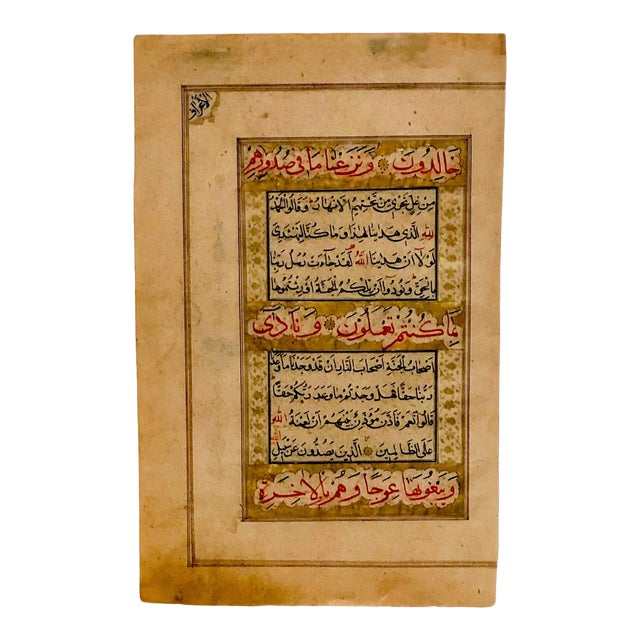 الاعراف
خالدون ونزعنا ما في صدورهم
من غل تجري من تحتهم الانهار وقالوا الحمد
لله الذي هدينا لهذا وما كنا لنهتدي
لولا ان هدينا الله لقد جاءت رسل ربنا
بالحق ونودوا ان تلكم الجنة اورثتموها
بما كنتم تعملون ونادى
اصحاب الجنة اصحاب النار ان قد وجدنا ما وعدنا
ربنا حقا فهل وجدتم ما وعد ربكم حقا
قالوا نعم فاذن مؤذن بينهم ان لعنة الله
على الظالمين الذين يصدون عن سبيل الله
ويبغونها عوجا وهم بالاخرة